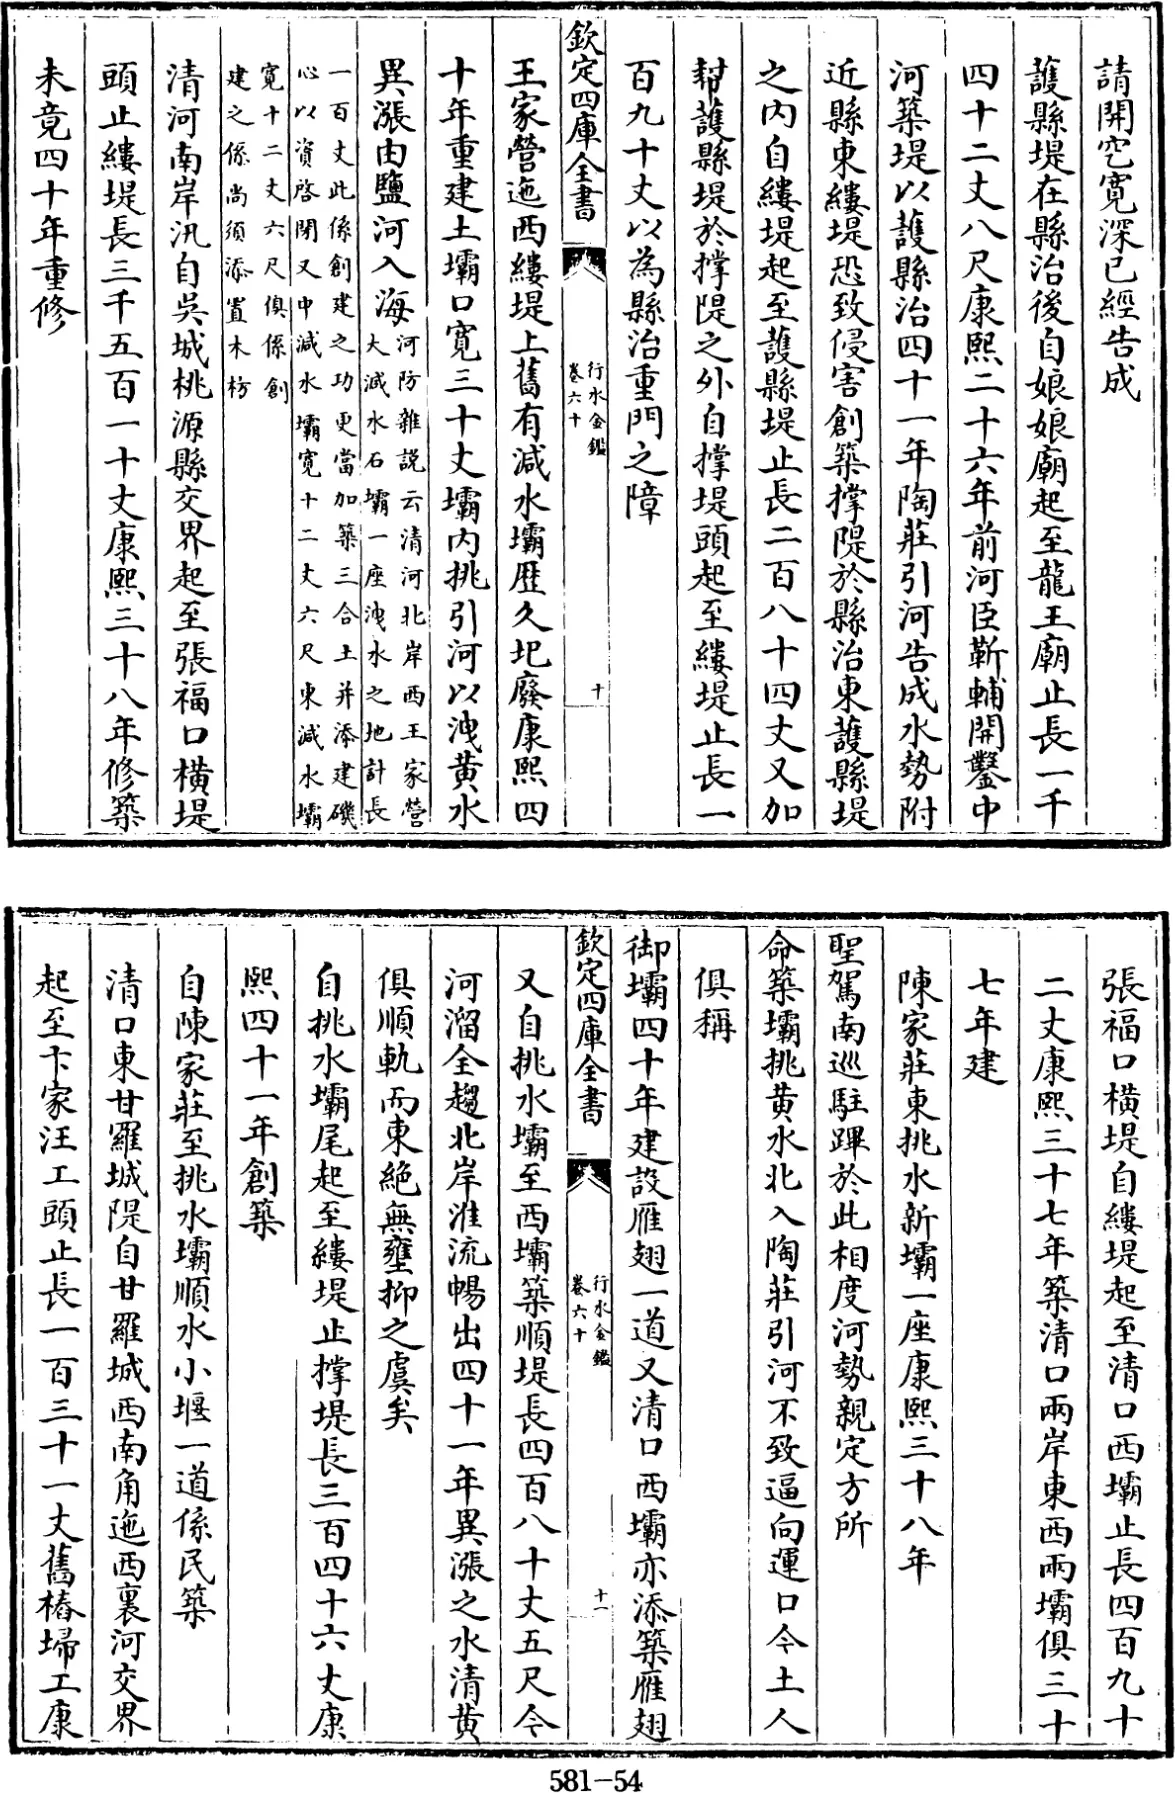 請開空寛深已經告成
護縣堤在縣治後自娘娘廟起至龍王廟止長一千
四十二丈八尺康熙二十六年前河臣靳輔開鑿中
河築堤以護縣治四十一年陶莊引河告成水勢附
近縣東縷堤恐致侵害創築撑隄於縣治東護縣堤
之内自縷堤起至護縣堤止長二百八十四丈又加
幇護縣堤於撑隄之外自撑堤頭起至縷堤止長一
百九十丈以為縣治重門之障
欽定四庫全書
行水金鑑
卷六十
十
王家營迤西縷堤上舊有減水壩歴久圮廢康熙四
十年重建土壩口寛三十丈壩内挑引河以洩黄水
異漲由鹽河入海
河防雜説云清河北岸西王家營
大減水石壩一座洩水之地計長
一百丈此係創建之功更當加築三合土并添建磯
心以資啓閉又中減水壩寛十二丈六尺東減水壩
寛十二丈六尺俱係創
建之係尚須添置木枋
清河南岸汛自吳城桃源縣交界起至張福口横堤
頭止縷堤長三千五百一十丈康熙三十八年修築
未竟四十年重修
張福口横堤自縷堤起至清口西壩止長四百九十
二丈康熙三十七年築清口兩岸東西兩壩俱三十
七年建
陳家莊東挑水新壩一座康熙三十八年
聖駕南巡駐蹕於此相度河勢親定方所
命築壩挑黄水北入陶莊引河不致逼向運口令土人
俱稱
御壩四十年建設雁翅一道又清口西壩亦添築雁翅
欽定四庫全書
行水金鑑
卷六十
十一
又自挑水壩至西壩築順堤長四百八十丈五尺令
河溜全趨北岸淮流暢出四十一年異漲之水清黄
俱順軌而東絶無壅抑之虞矣
自挑水壩尾起至縷堤止撑堤長三百四十六丈康
熙四十一年創築
自陳家莊至挑水壩順水小堰一道係民築
清口東甘羅城隄自甘羅城西南角迤西裏河交界
起至卞家汪工頭止長一百三十一丈舊樁埽工康
581-54